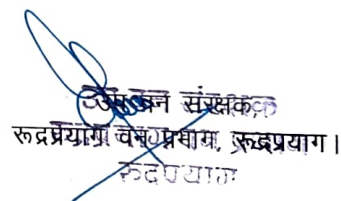 उप वन संरक्षक,
रूद्रप्रयाग वन प्रभाग, रूद्रप्रयाग।
रुद्रप्रयाग